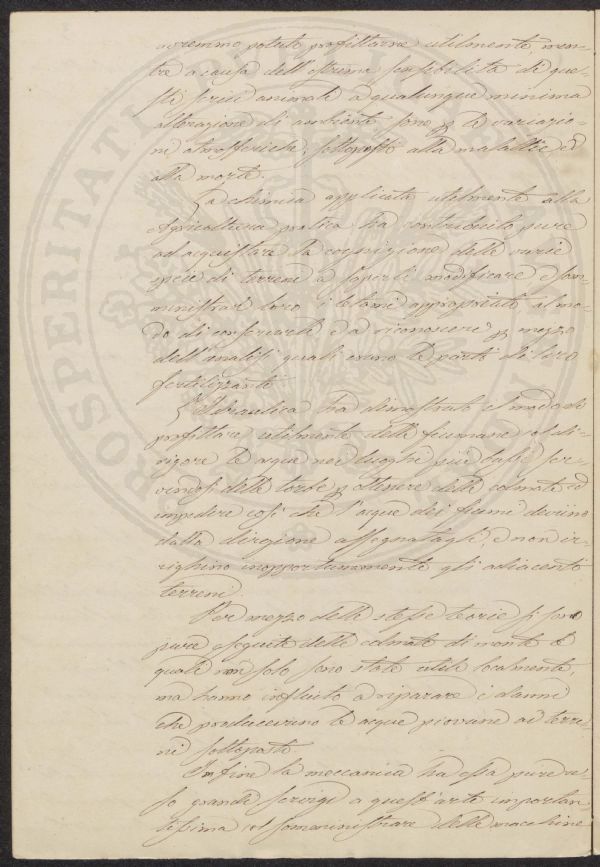 avremmo potuto profittarne utilmente, men-
tre a causa dell'estrema sensibilità di que-
sti serici animali a qualunque minima
alterazione di ambiente sono p le variazio-
ni atmosferiche, sottoposti alla malattie, ed
alla morte.
La chimica applicata utilmente alla
Agricoltura pratica ha contribuito pure
ad acquistare la cognizione delle varie
specie di terreni a saperli modificare, e som-
ministrar loro i letami appropriati al mo-
do di conservarli e a riconoscere p mezzo
dell'analisi quali erano le parti di loro
fertilizzanti.
L'Idraulica ha dimostrato il modo di
profittare utilmente delle fiumane col di-
rigere le acque nei luoghi più bassi ser-
vendosi delle torbe p ottenere delle colmate ed
impedire così che l'acque dei fiumi deviino
dalla direzione assegnatagli, e non ir-
righino inopportunamente gli adiacenti
terreni.
Per mezzo delle stesse teorie si sono
pure eseguite delle colmate di monte le
quali non solo sono state utili localmente,
ma hanno influito a riparare i danni
che producevano le acque piovane ai terre-
ni sottoposti.
Infine la meccanica ha essa pure re-
so grandi servigi a quest'arte importan-
tissima col somministrare delle macchine
PROSPERITATI